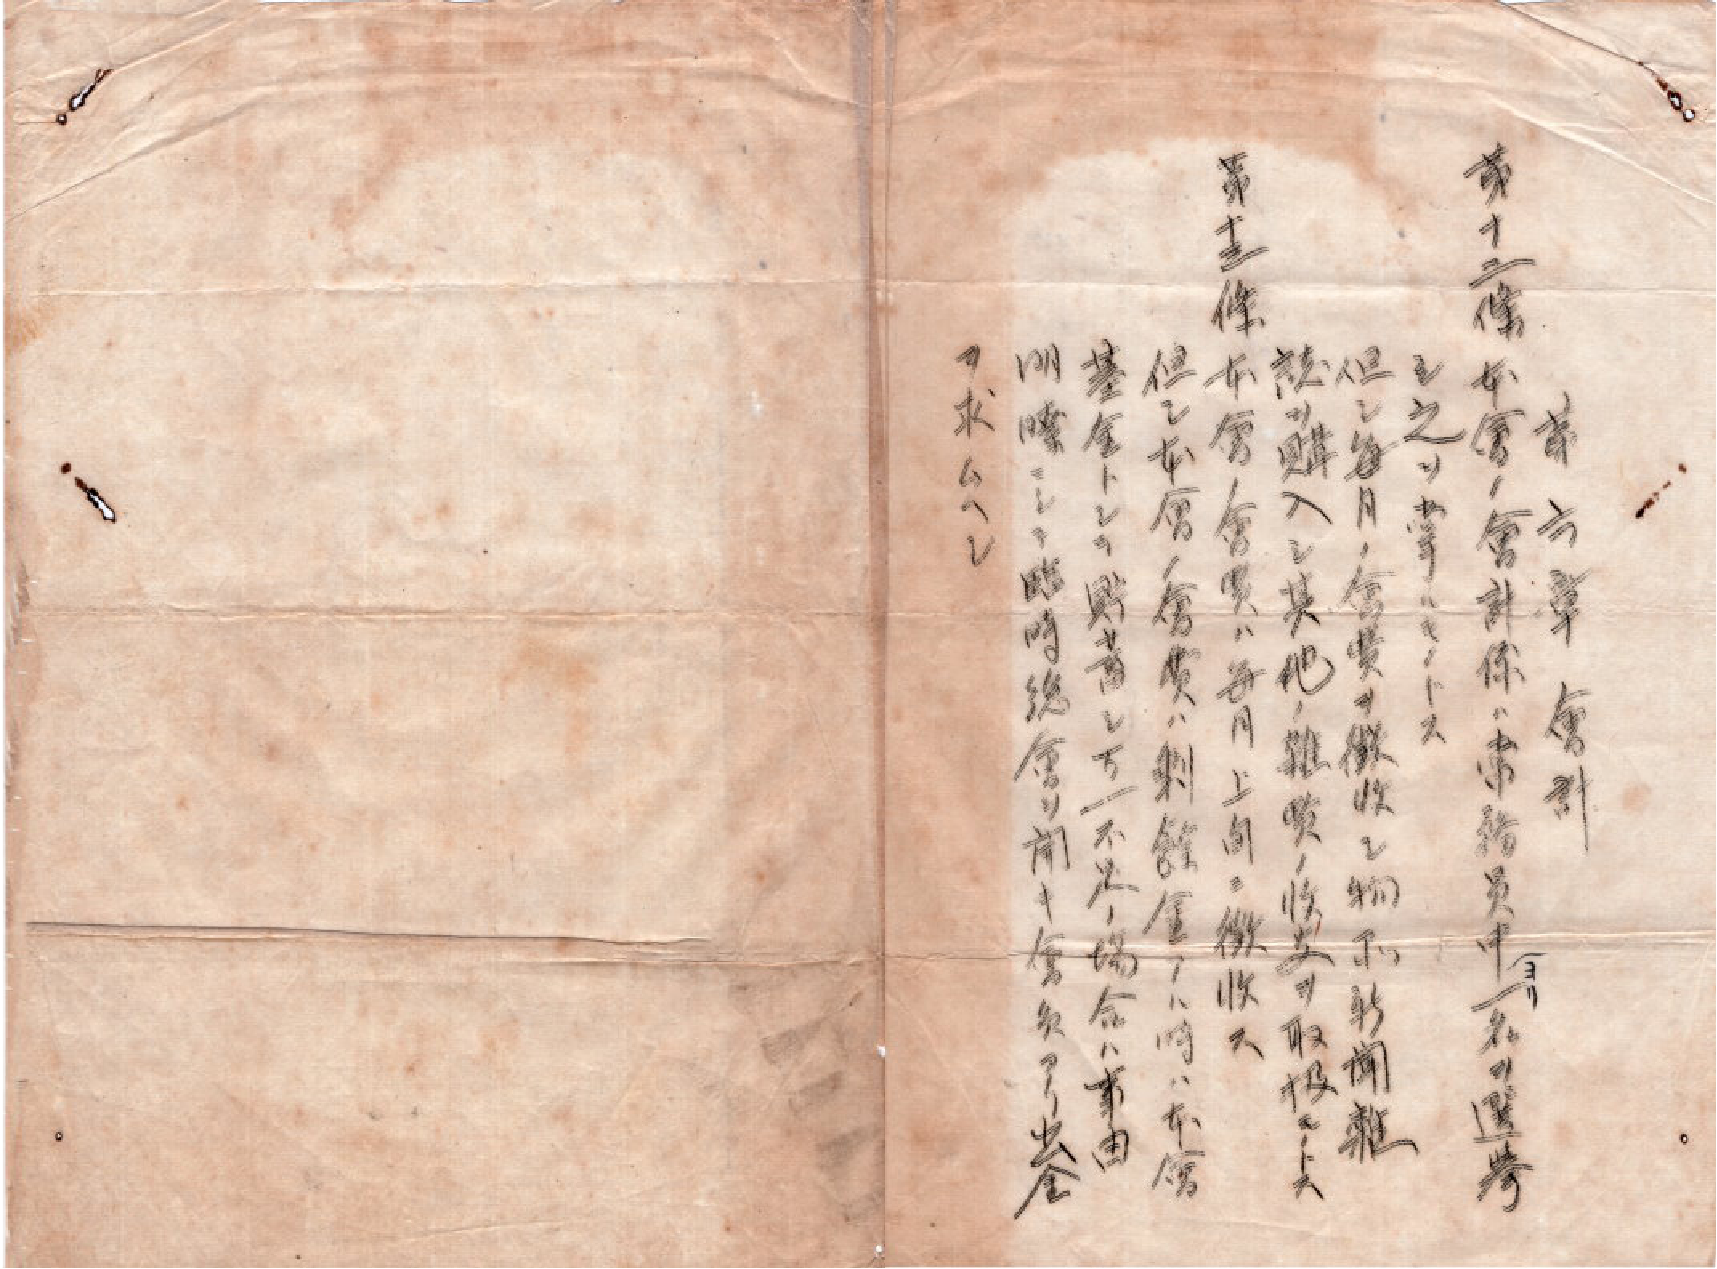 第六章 會計
第十二條 本會ノ會計係ハ常務員中ヨリ一名ヲ選挙
シ之ヲ掌ルモノトス
但シ毎月ノ會費ヲ徴收シ物品新聞雑
誌ヲ購入シ其他ノ雑費ノ收支ヲ取扱モノトス
第十三條 本會ノ會費ハ毎月上旬ニ徴收ス
但シ本會ノ會費ハ剰餘金ノ時ハ本會
基金トシテ貯蓄シ万一不足ノ場合ハ事由
明瞭ニシテ臨時総會ヲ開キ會員ヨリ出金
ヲ求ムヘシ